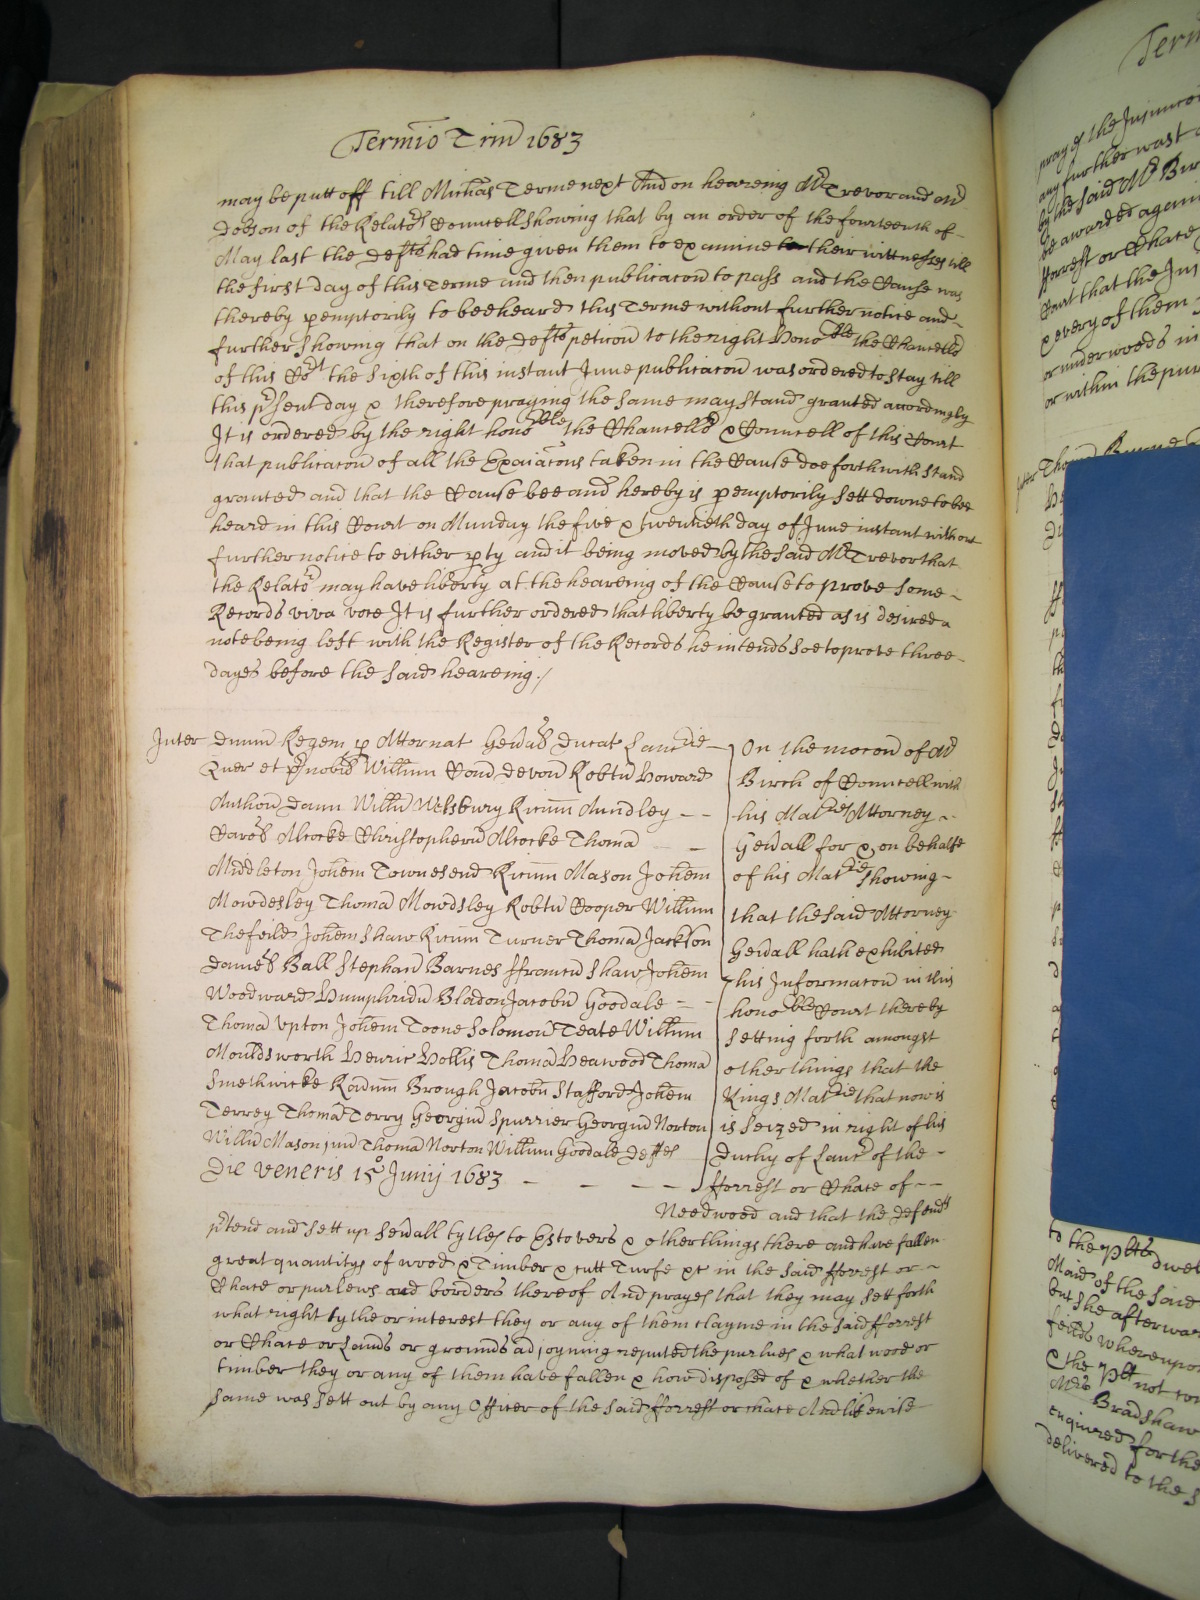 Termio Trin 1683
may be putt off till Michas Terme next And on heareing Mr Trevor and Mr
Dobson of the Relators Councell showing that by an order of the fourteenth of
May last the Defts had time given them to examine their wittnesses till
the first day of this Terme and then publicacon to pass and the Cause was
thereby pemptorily to bee heard this Terme without further notice and
further showing that on the Defts peticon to the right honoble the Chancellor
of this Cort the sixth of this instant June publicacon was ordered to stay till
this prsent day & therefore praying the same may stand granted accordingly
It is ordered by the right honoble the Chancellor & Councell of this Court
that publicacon of all the Exaiacons taken in the Cause doe forthwith stand
granted and that the Cause bee and hereby is pemptorily sett downe to bee
heard in this Court on Munday the five & twentieth day of June instant without
further notice to either pty and it being moved by the said Mr Trevor that
the Relator may have liberty at the heareing of the Cause to prove some
Records viva voce It is further ordered that liberty be granted as is desired a
note being left with the Register of the Records he intends soe to prove three
dayes before the said heareing
Inter Dnum Regem p Attornat Genal Ducat sancie
Quer et Willum Com Devon Robtu Howard
Willu Ricum Aundley
Alcocke Christopheru Alcocke Thoma
Middleton Johem Townesend Ricum Mason Johem
Mowdesley Thoma Mowdsley Robtu Cooper Willum
Thefeild Johem Shaw Ricum Turner Thoma Jackson
Ball Stephan Barnes ffrancu Shaw Johem
Woodward Humphridu Bladon Jacobu Goodale
Thoma Upton Johem Toone Solomon Teate Willum
Mouldsworth Henric Hollis Thoma Heawood Thoma
Smethwicke Radum Brough Jacobu Stafford Johem
Terrey Thoma Terry Georgiu Spurrier Georgiu Norton
Willu Mason jun Thoma Norton Willum Goodale Deftes
Die Veneris 15 Junij 1683
On the mocon of Mr
Birch of Councell with
his Maties Attorney
Genall for & on behalfe
of his Matie showing
that the said Attorney
Genall hath exhibited
his Informacon in this
honoble Court thereby
setting forth amongst
other things that the
Kings Matie that now is
is seized in right of his
Duchy of Lancr of the
fforrest or Chace of
Needwood and that the Defendts
prtend and sett up sevall tytles to Estovers & other things there and have fallen
great quantitys of wood & Timber & cutt Turfe &c in the said fforrest or
Chace or purlews and borders thereof And prayes that they may sett forth
what right tytle or interest they or any of them clayme in the said fforrest
or Chace or Lands or grounds adjoyning reputed the purlues & what wood or
timber they or any of them have fallen & how disposed of & whether the
same was sett out by any Officer of the said fforrest or chace And likewise
Term
pray
any further wast
by the said Mr Bir
be awarded again
fforrest or Chace
Court that the
& every of them
or underwoods in
or within the pur
to the Plts dwel
Maid of the said
but she afterwar
feilds whereupon
& the Plt not
Mrs Bradshaw
enquired for the
delivered to the S